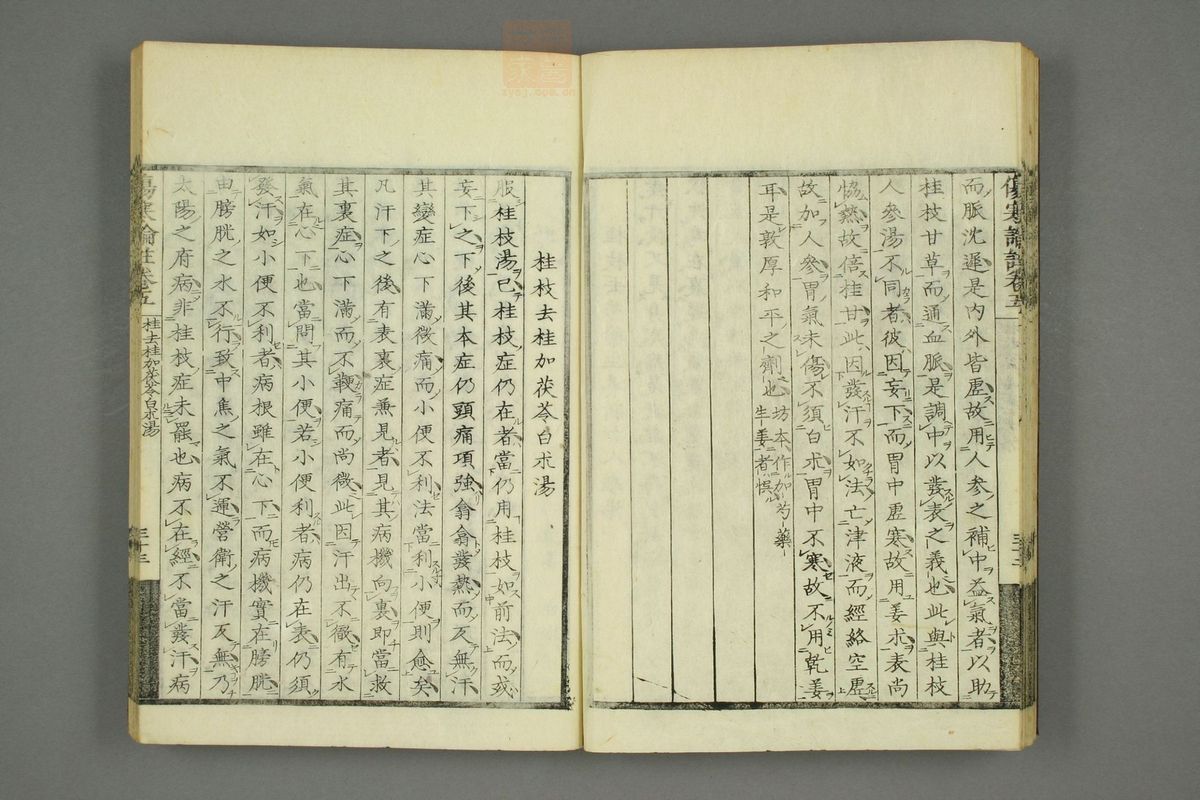 而脈沈遲是內外皆虛故用人參之補中益氣者以助
桂枝甘草而通血脈是調中以發表之義也此與桂枝
人參湯不同者彼因妄下而胃中虛寒故用姜朮表尚
恊熱故倍桂甘此因發汗不如法亡津液而經絡空虛
故加人參胃氣未傷不須白朮胃中不寒故不用乾姜
耳是敦厚和平之劑也
坊本作加芍藥
生姜者悞
桂枝去桂加茯苓白朮湯
服桂枝湯已桂枝症仍在者當仍用桂枝如前法而或
妄下之下後其本症仍頭痛項強翕翕發熱而反無汗
其變症心下滿微痛而小便不利法當利小便則愈矣
凡汗下之後有表裏症兼見者見其病機向裏即當救
其裏症心下滿而不鞕痛而尚微此因汗出不徹有水
氣在心下也當問其小便若小便利者病仍在表仍須
發汗如小便不利者病根雖在心下而病機實在膀胱
由膀胱之水不行致中焦之氣不運營衛之汗反無乃
太陽之府病非桂枝症未罷也病不在經不當發汗病
傷寒論註卷五
桂去桂加茯苓白朮湯
三十三